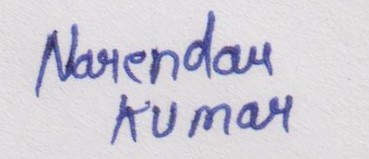 Narendar
Kumar